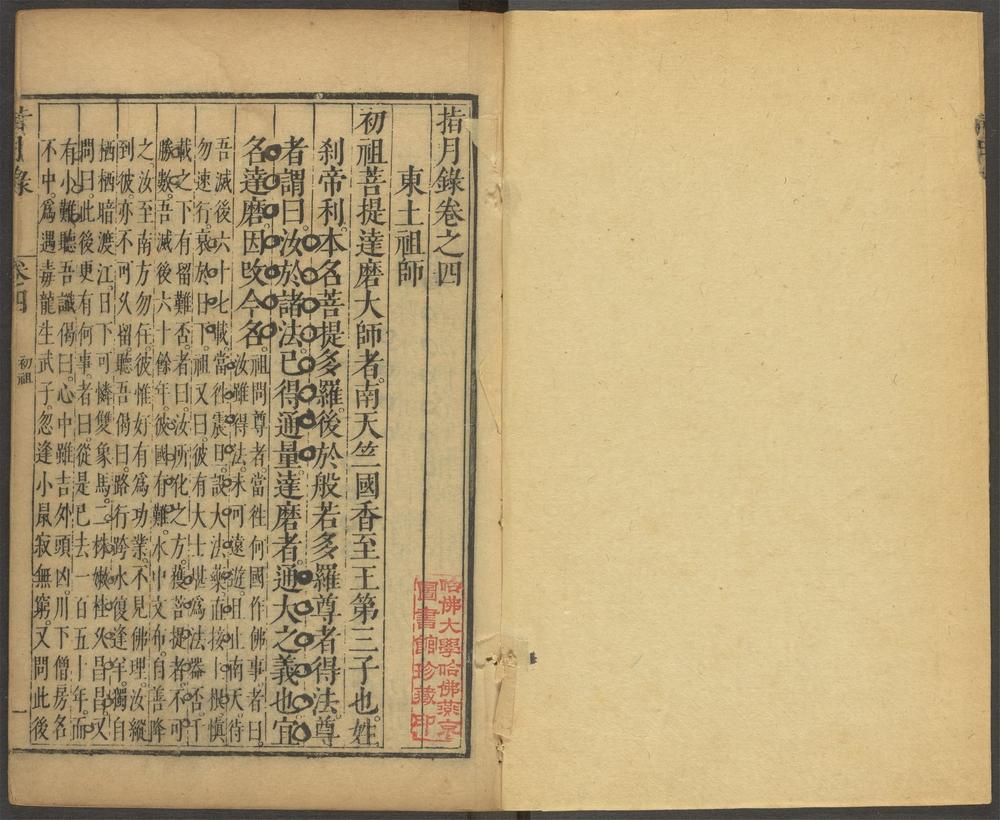 指月錄卷之四
東土祖師
初祖菩提達磨大師者。南天竺國香至王第三子也。姓
刹帝利。本名菩提多羅。後於般若多羅尊者得法。尊
者謂曰。汝於諸法。已得通量。達磨者。通大之義也。宜
名達磨。因改今名。
祖問尊者。當往何國作佛事。者曰。
汝雖得法。未可遠遊。且止南天。待
吾滅後六十七載。當往震旦。設大法藥。直接上根。慎
勿速行。衰於日下。祖又曰。彼有大士堪爲法器否。千
載之下有留難否。者曰。汝所化之方。獲菩提者。不可
勝數。吾滅後六十餘年。彼國有難。水中文布。自善降
之。汝至南方勿住。彼惟好有爲功業。不見佛理。汝縱
到彼。亦不可久留。聽吾偈曰。路行跨水復逢羊。獨自
栖栖暗渡江。日下可憐雙象馬。二株嫩桂久昌昌。又
問曰。此後更有何事。者曰。從是已去一百五十年。而
有小難。聽吾讖偈曰。心中雖吉外頭凶。川下僧房名
不中。爲遇毒龍生武子。忽逢小鼠寂無窮。又問此後
指月錄
卷四
初祖
一
哈佛大學哈佛燕京
圖書館珍藏印